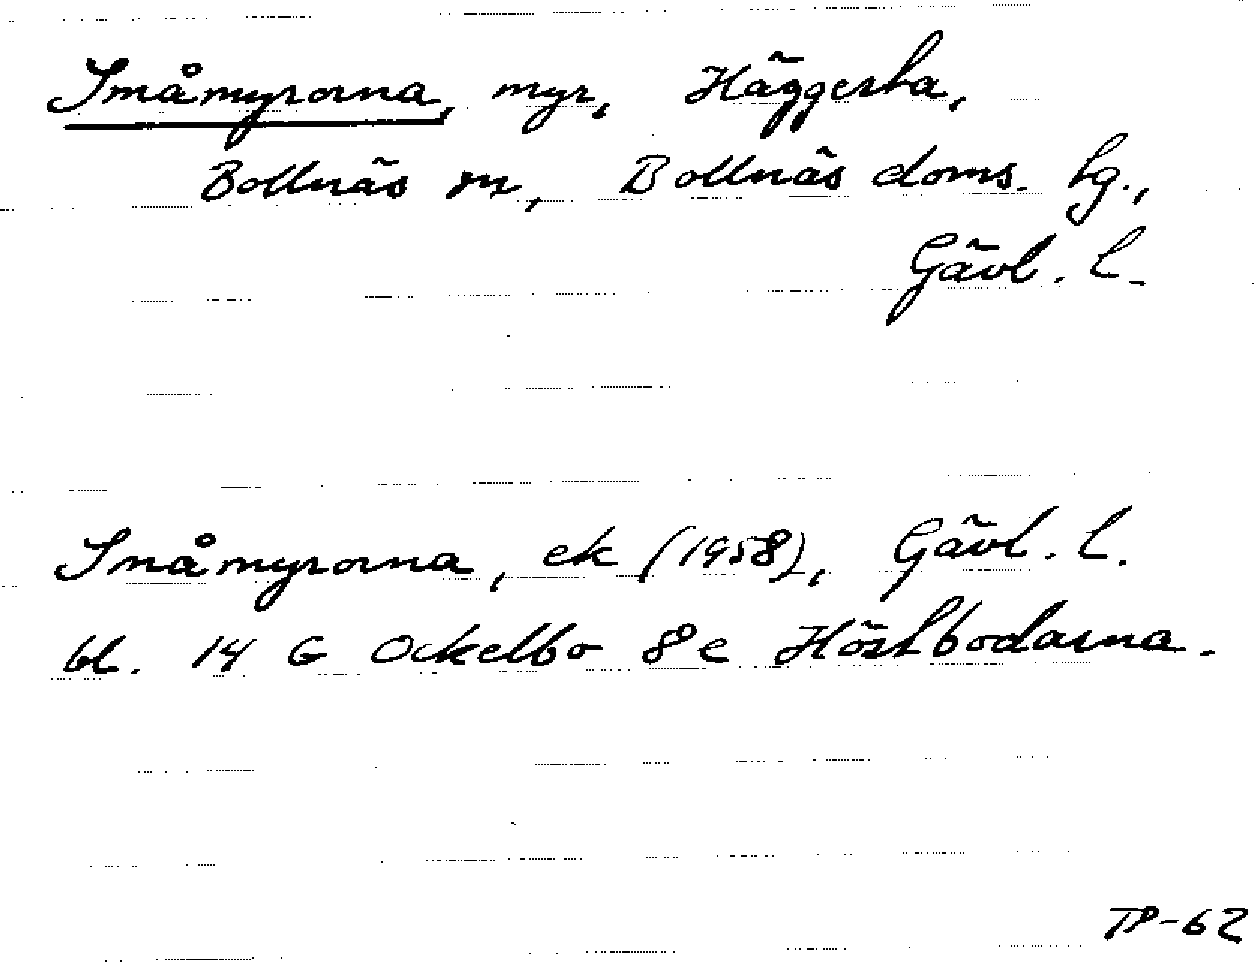 Småmyrorna, myr, Häggesta,
Bollnäs sn, Bollnäs doms. hg.,
Gävl. l.
Småmyrorna, ek (1958), Gävl. l.
bl. 14 G Ockelbo 8 e Höstbodarna.
TP-62